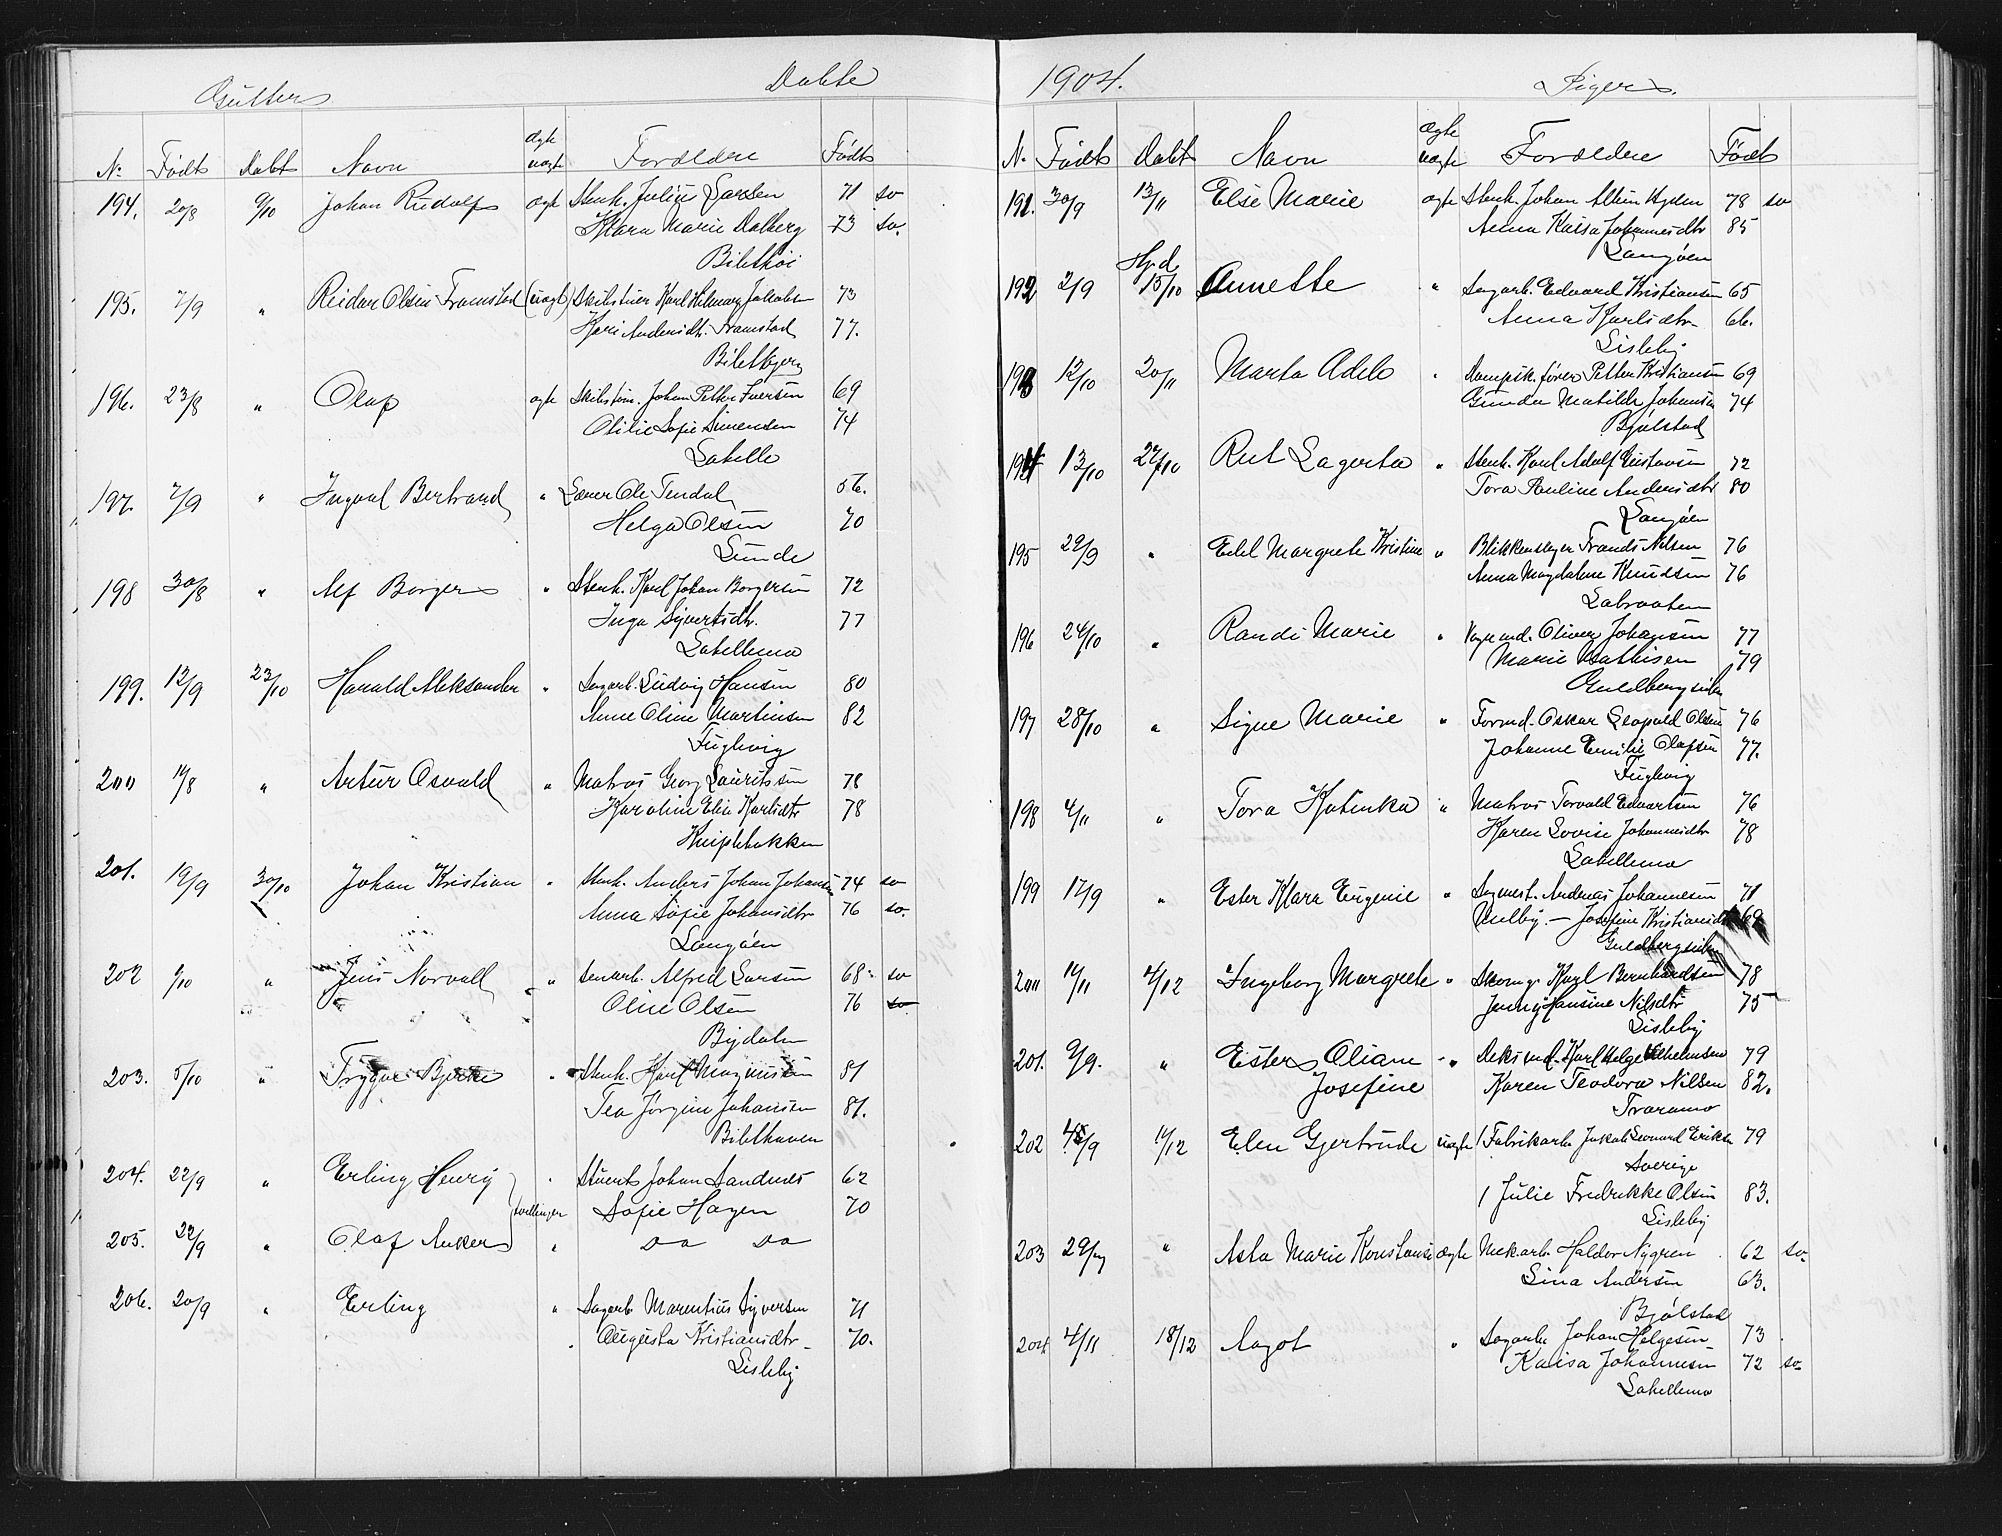 Gutter Døbte
N. Født Døbt Navn ægte uægte Forældre Født
194. 20/8 9/10 Johan Rudolf ægte Stenh. Julius Larsen 71 so
Klara Marie Dalberg 73 so.
195. 7/9 " Reidar Olsen Framstad (uægt) Karl Hilmar Jakobsen 73
Kari Andersdtr. Framstad 77.
196. 23/8 " Olaf ægte Johan Petter Iversen 69
Otilie Sofie Simensen 74
Labelle
197. 7/9 " Ingval Bertrand " Ole Tendal 56.
Helga Olsen 70
Lunde
198 30/8 " Alf Borger " Stenh. Karl Johan Borgersen 72
Inga Syvertsdtr. 77
Labellemo
199. 12/9 23/10 Harald Aleksander " Sagarb. Ludvig Hansen 80
Anne Oline Martinsen 82
Fuglevig
200 14/8 " Artur Osvald " Matros Georg Lauritssen 78
Karoline Elise Karlsdtr 78
201. 19/9 30/10 Johan Kristian " Stenh. Anders Johan Johansen 74 so
Anna Sofie Johansdtr 76 so.
Langøen
202 9/10 " Jens Norvall " Alfred Larsen 68 so
Oline Olsen 76 so
Bydalen
203. 5/10 " Trygve Bjerke " Stenh. Karl Magnussen 81
Tea Jørgine Johansen 81.
204. 22/9 " Erling Henry " Stuert Johan Sandnes 62
tvillinger Sofie Hagen 70
205. 22/9 " Olaf Anker " Do Do
206. 20/9 " Erling " Sagarb. Marentius Syversen 71
Augusta Kristiansdtr 70.
Lisleby
1904. Piger.
N. Født Døbt Navn ægte uægte Forældre Født
191. 30/9 13/11 Else Marie ægte Stenh. Johan Hyden 78 so
Anna Kaisa Johannesdtr 85
Langøen
Hjd.
192 2/9 15/10 Annette " Sagarb. Edvard Kristiansen 65
Anna Karlsdtr 66.
Lisleby
193 12/10 20/11 Marta Adele " Dampsk. fører Petter Kristiansen 69
Gunda Matilde Johansen 74
Bjølstad
194 13/10 27/10 Rut Lagerta " Stenh. Karl Adolf Gustavsen 72
Tora Pauline Andersdtr 80
Langøen
195 22/9 " Edel Margrete Kristine " Blikkenslager Frands Nilsen 76
Anna Magdalene Knudsen 76
Labraaten
196 24/10 " Randi Marie " Oliver Johansen 77
Marie Mathisen 79
Guldbergsiden
197 28/10 " Signe Marie " Formd. Oskar Leopold Olsen 76
Johanne Emilie Olafsen 77.
Fuglevig
198 4/11 " Tora Katinka " Matros Torvald Edvartsen 76
Karen Lovise Johannesdtr 78
Labellemo
199 17/9 " Ester Klara Eugenie " Sagmest. Andreas Johannesen 71
Josefine Kristiansdtr 69
Guldbergsiden
200 14/11 4/12 Ingeborg Margrete " Karl Bernhardsen 78
Jenny Hansine Nilsdtr 75
Lisleby
201. 9/9. " Ester Oliane " Karl Helge Vilhelmsen 79
Josefine Karen Teodora Nilsen 82.
Traramo
202 15/9 11/12 Elen Gjertrude uægte / Fabrikarb. Jakob Leonard Eriksen 79
Sverige
/ Julie Fredrikke Olsen 83.
Lisleby
203 29/9 " Asta Marie Konstanse ægte Mekarb. Haldor Nygren 62 so.
Lina Andersen 63.
Bjølstad
204 4/11 18/12 Aagot " Sagarb. Johan Helgesen 73
Kaisa Johannesen 72 so
Labellemo